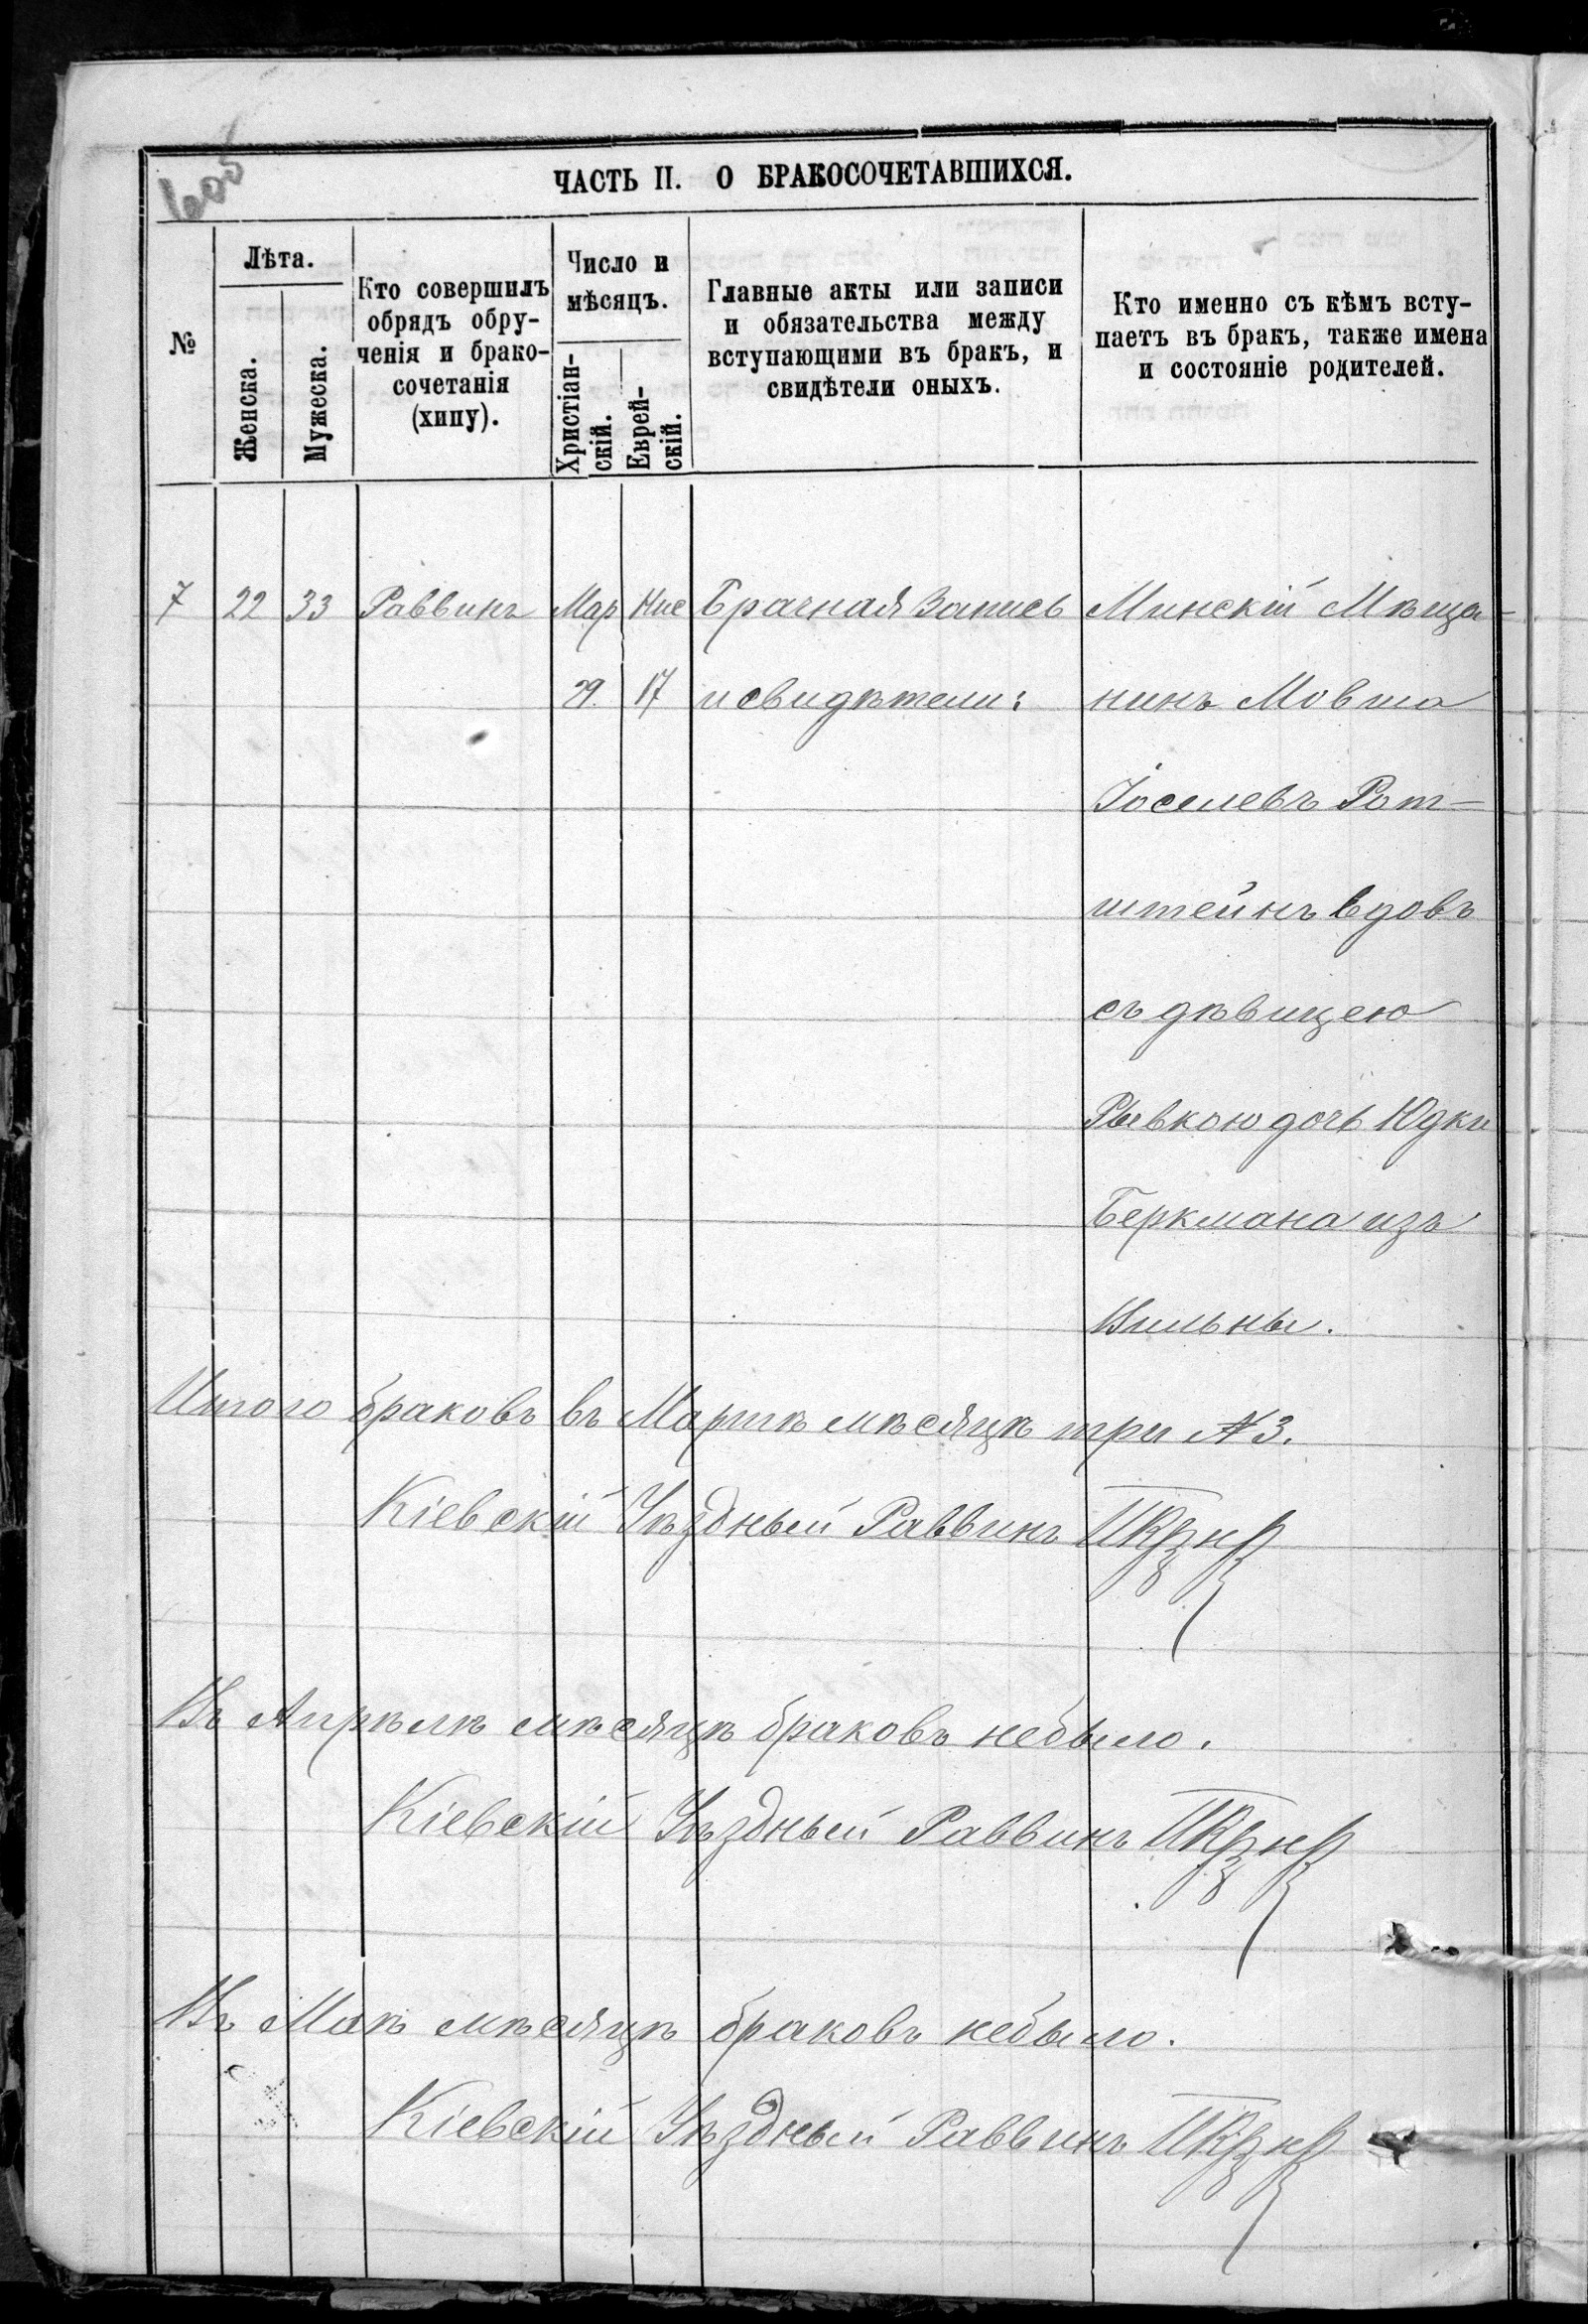 605
ЧАСТЬ II. О БРАКОСОЧЕТАВШИХСЯ.
№
Лѣта.
Женска.
Мужеска.
Кто совершилъ
обрядъ обру-
ченія и брако-
сочетанія
(хипу).
Число и
мѣсяцъ.
Христіан-
скій.
Еврей-
скій.
Главные акты или записи
и обязательства между
вступающими въ бракъ, и
свидѣтели оныхъ.
Кто именно съ кѣмъ всту-
паетъ въ бракъ, также имена
и состояніе родителей.
7 22 33 Раввинъ Мар Нис Брачная Запись Минскій Мѣща-
29. 17 и свидѣтели: нинъ Мовша
Іоселевъ Рот-
штейнъ вдовъ
съ дѣвицею
Рывкою дочь Юдки
Беркмана изъ
Вильны.
Итого браковъ въ Мартѣ мѣсяцѣ три № 3.
Кіевскій Уѣздный Раввинъ
Въ Апрѣлѣ мѣсяцѣ браковъ небыло.
Кіевскій Уѣздный Раввинъ
Въ Маѣ мѣсяцѣ браковъ небыло.
Кіевскій Уѣздный Раввинъ